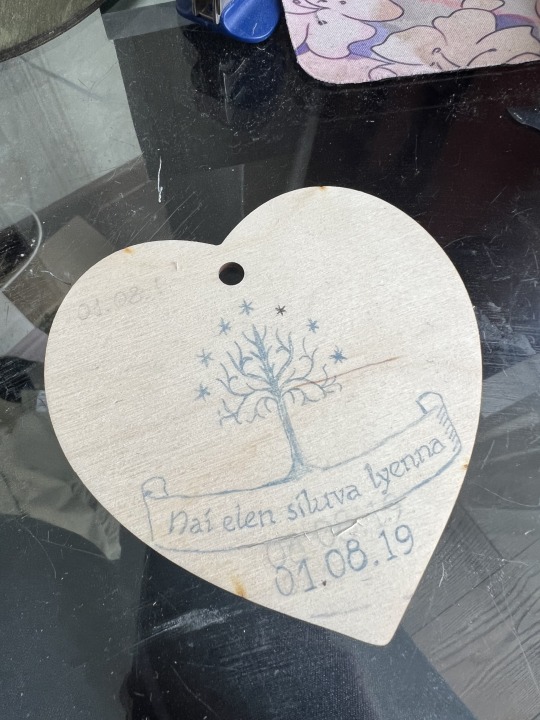 01.08.1
Nai elen siluva lyenna
01.08.19